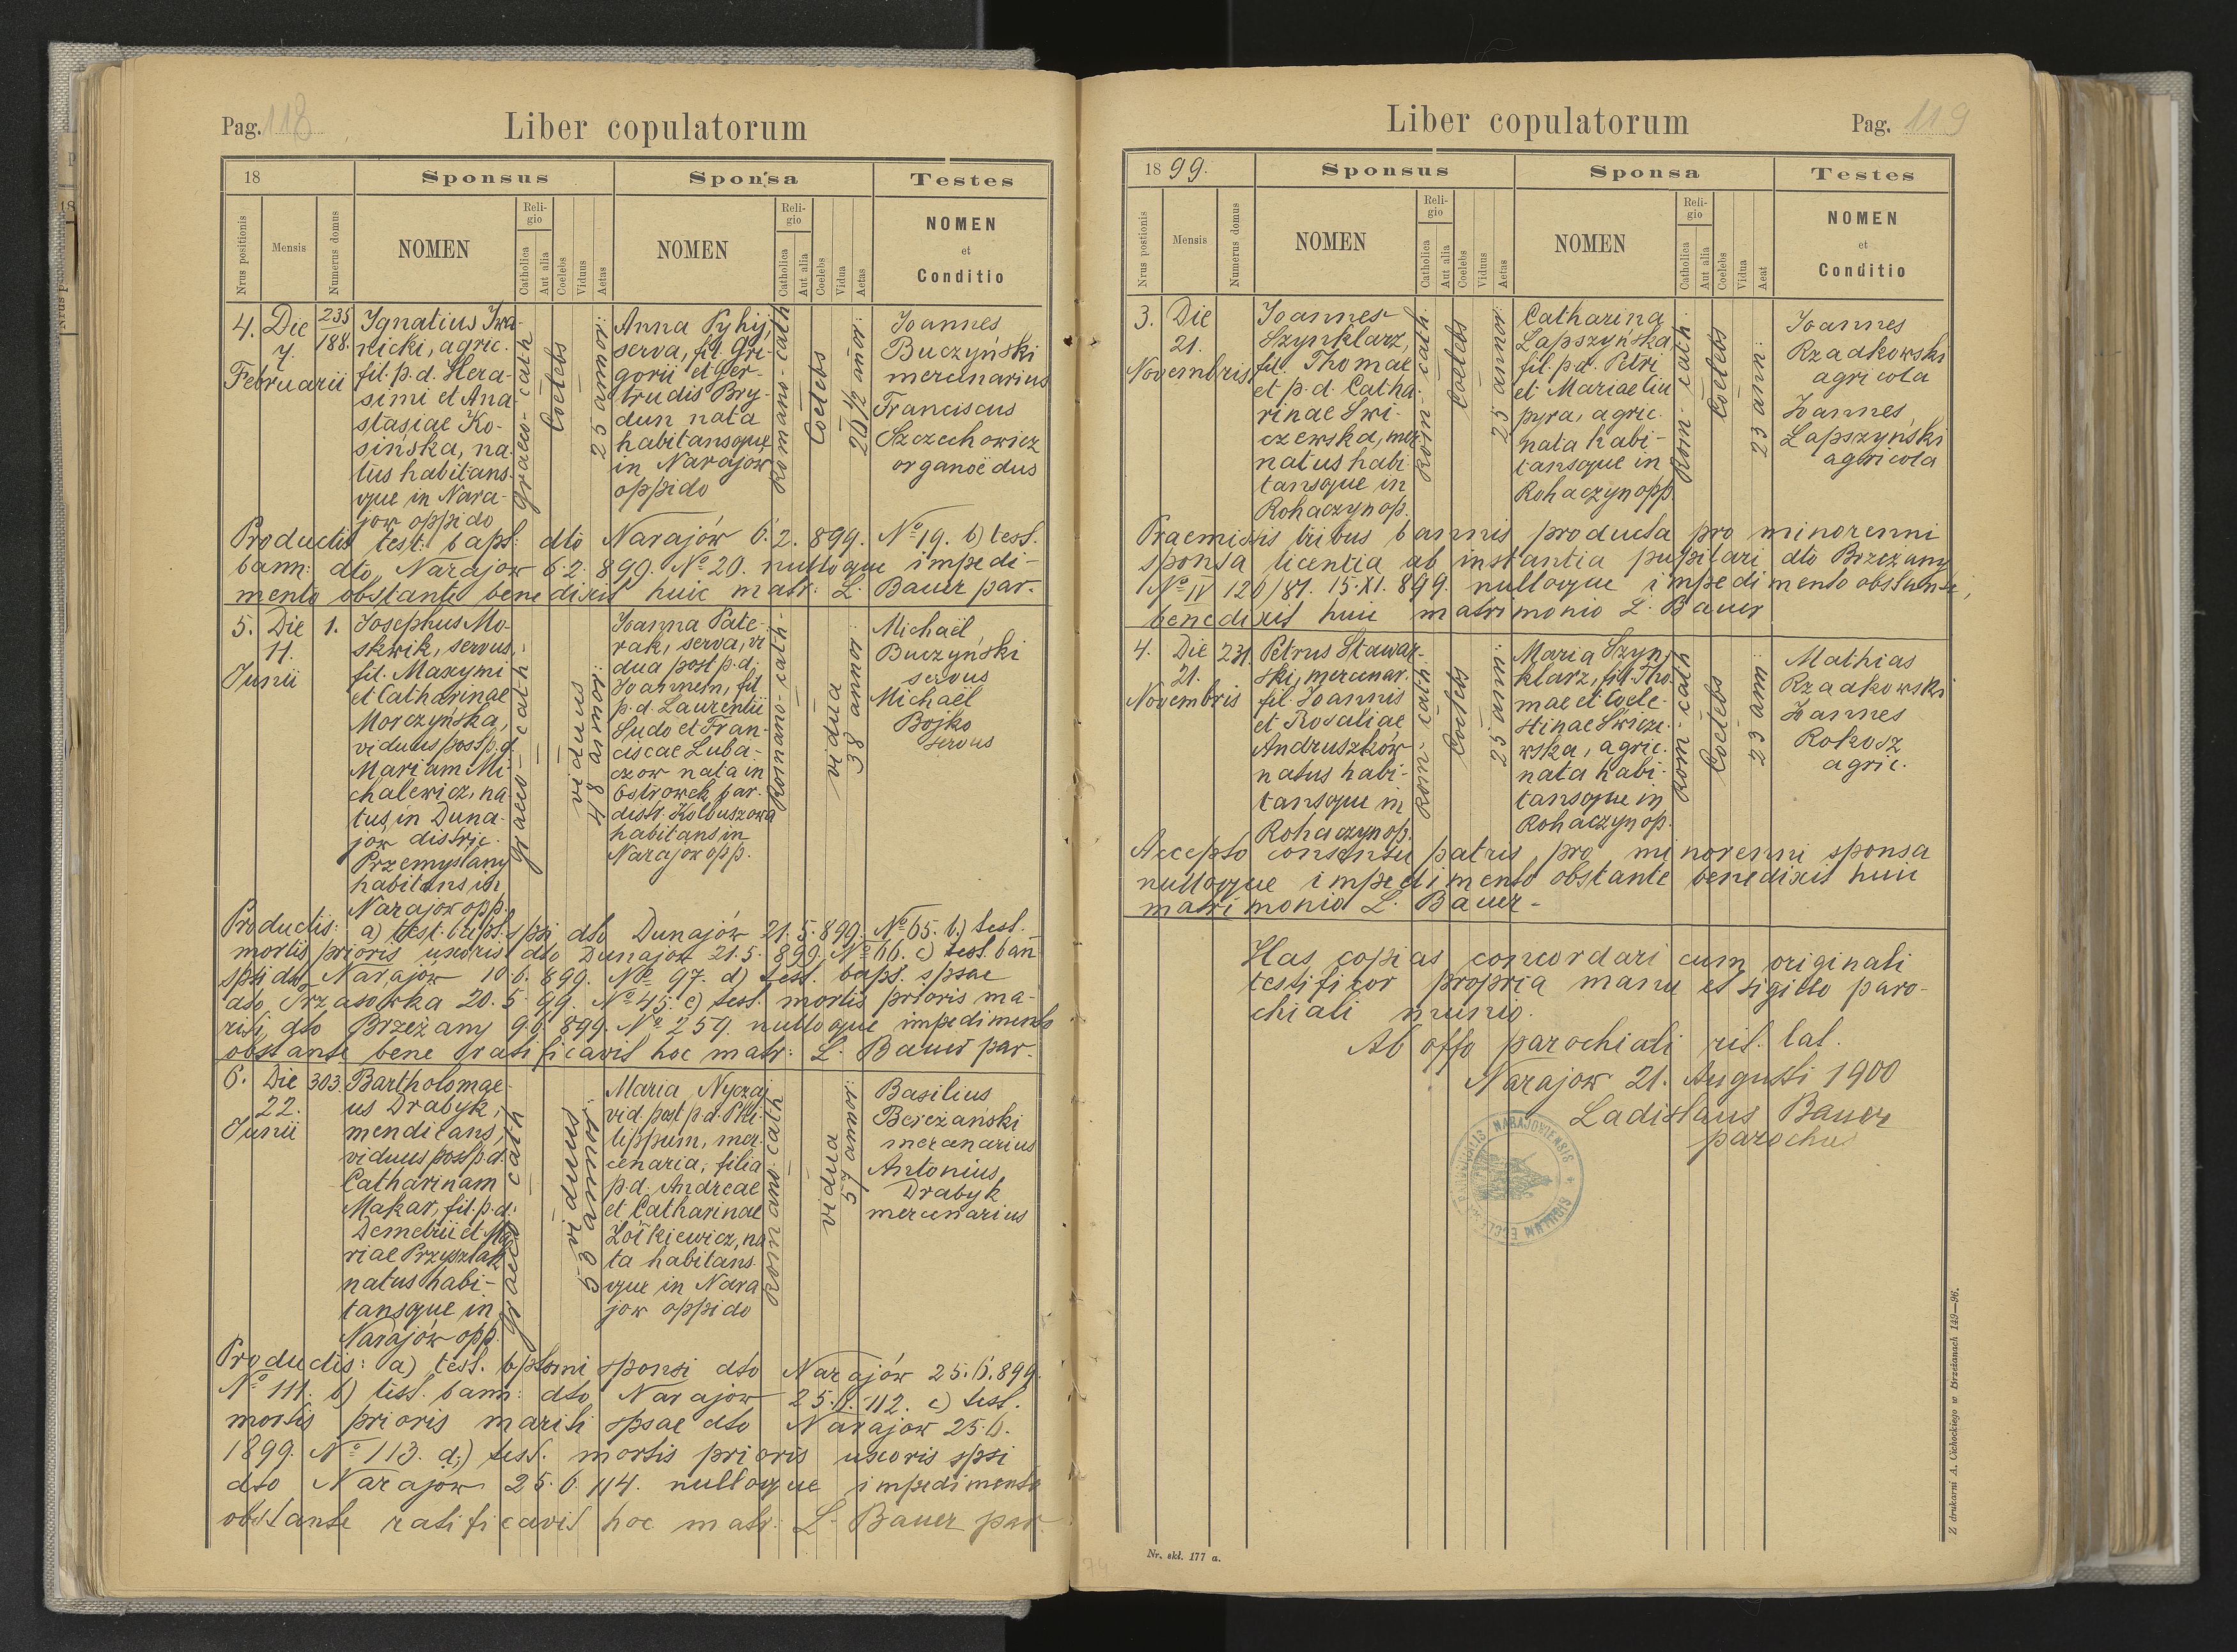 Pag. 118
Liber copulatorum
18
Sponsus
Sponsa
Testes
Nrus positionis
Mensis
Numerus domus
NOMEN
Religio
Catholica
Aut alia
Coelebs
Viduus
Aetas
NOMEN
Religio
Catholica
Aut alia
Coelebs
Vidua
Aetas
NOMEN
et
Conditio
4.
Die
7.
Februarii
235
188.
Ignatius Iwa-
nicki, agric.
fil. p. d. Hera-
simi et Ana-
stasiae Ko-
sińska, na-
tus habitans-
que in Nara-
jow oppido
Graeco-cath
Coelebs
25 annor:
Anna Pyhij,
serva, fil. Gri-
gorii et Ger-
trudis Bry-
dun nata
habitansque
in Narajow
oppido
Romano-cath
Coelebs
20 4/12 annor:
Joannes
Buczyński
mercenarius
Franciscus
Szczechowicz
organoëdus
Productis test: bapt: dto Narajów 6. 2. 899. No 19. b) test.
bann: dto Narajow 6. 2. 899. No 20. nulloque impedi-
mento obstante benedixit huic matr: L. Bauer par.
5.
Die
11.
Junii
1.
Josephus Mo-
skwik, servus,
fil. Maxymi
et Catharinae
Morczyńska,
viduus post p. d.
Mariam Mi-
chalewicz, na-
tus in Duna-
jow distric.
Przemyslany
habitans in
Narajow opp.
Graeco-cath
viduus
48 annor:
Joanna Pate-
rak, serva, vi
dua post p. d.
Joannem, fil.
p. d. Laurentii
Ludo et Fran-
ciscae Luba-
czow nata in
Ostrowek par.
distr. Kolbuszowa
habitans in
Narajow opp.
Romano-cath-
vidua
38 annor:
Michaël
Buczyński
servus
Michaël
Bojko
servus
Productis: a) test: bapt: spsi dto Dunajów 21. 5. 899. No 65. b.) test.
mortis prioris uxoris dto Dunajow 21. 5. 899. No 66. c) test. ban
spsi dto Narajów 10. 6. 899. No 97. d) test. bapt. spsae
dto Trzasowka 20. 5. 99. No 45. e) test. mortis prioris ma-
riti dto Brzeżany 9. 6. 899. No 259. nulloque impedimento
obstante bene ratificavit hoc matr: L. Bauer par.
6.
Die
22.
Junii
303.
Bartholomae-
us Drabyk,
mendicans,
viduus post p. d.
Catharinam
Makar, fil. p. d.
Demetrii et Ma
riae Przysztak
natus habi-
tansque in
Narajów opp.
Graeco cath
viduus
annor:
Maria Nyczaj
vid. post p. d. Phi-
lippum, mer-
cenaria, filia
p. d. Andreae
et Catharinae
Żołkiewicz, na
ta habitans-
que in Nara
jow oppido
Romano cath
vidua
57 annor:
Basilius
Bereżański
mercenarius
Antonius
Drabyk
mercenarius
Productis: a) test. bptsmi sponsi dto Narajów 25. 6. 899.
No 111. b) test. bann: dto Narajow 25. 6. 112. c) test.
mortis prioris mariti spsae dto Narajow 25. 6.
1899. No 113. d;) test. mortis prioris uxoris spsi
dto Narajow 25. 6. 114. nulloque impedimento
obstante ratificavit hoc matr: L. Bauer par.
Liber copulatorum
Pag. 119
1899.
Sponsus
Sponsa
Testes
Nrus postionis
Mensis
Numerus domus
NOMEN
Religio
Catholica
Aut alia
Coelebs
Viduus
Aetas
NOMEN
Religio
Catholica
Aut alia
Coelebs
Vidua
Aeat
NOMEN
et
Conditio
3.
Die
21.
Novembris
Joannes
Szynklarz,
fil. Thomae
et p. d. Catha
rinae Swi-
czewska, mer
natus habi
tansque in
Rohaczyn op.
Rom: cath.
Coelebs
25 annor:
Catharina
Lapszyńska
fil. p. d. Petri
et Mariae Liu
pyra, agric.
nata habi-
tansque in
Rohaczyn opp.
Rom: cath:
Coelebs
23 ann:
Joannes
Rzadkowski
agricola
Joannes
Lapszyński
agricola
Praemissis tribus bannis producta pro minorenni
sponsa licentia ab instantia pupilari dto Brzeżany
No IV 120/81. 15. XI. 899. nulloque impedimento obstante,
benedixit huic matrimonio L. Bauer
4.
Die
21.
Novembris
231.
Petrus Stawar-
ski, mercenar.
fil. Joannis
et Rosaliae
Andruszków
natus habi-
tansque in
Rohaczyn op.
Rom: cath.
Coelebs
25 ann:
Maria Szyn-
klarz, fil. Tho-
mae et Coele-
stinae Swicze-
wska, agric.
nata habi-
tansque in
Rohaczyn op.
Rom: cath
Coelebs
23 ann:
Mathias
Rzadkowski
Joannes
Rokosz
agric.
Accepto consensu patris pro minorenni sponsa
nulloque impedimento obstante benedixit huic
matrimonio L. Bauer -
Has copias concordari cum originali
testificor propria manu et sigillo paro-
chiali munio.
Ab offo parochiali rit. lat.
Narajow 21. Augusti 1900
Ladislaus Bauer
parochus
NARAJOVIENSIS
Nr. skl. 177 a.
Z drukarni A. Cichockiego w Brzeżanach 149—96.